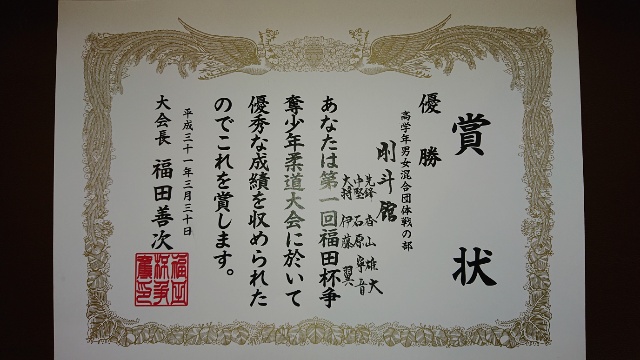 賞状
優勝
高学年男女混合団体戦の部
剛斗館
先鋒 香山雄大
中堅 石原寧音
大将 伊藤翼
あなたは第一回福田杯争
奪少年柔道大会に於いて
優秀な成績を収められた
のでこれを賞します。
平成三十一年三月三十日
大会長 福田善次